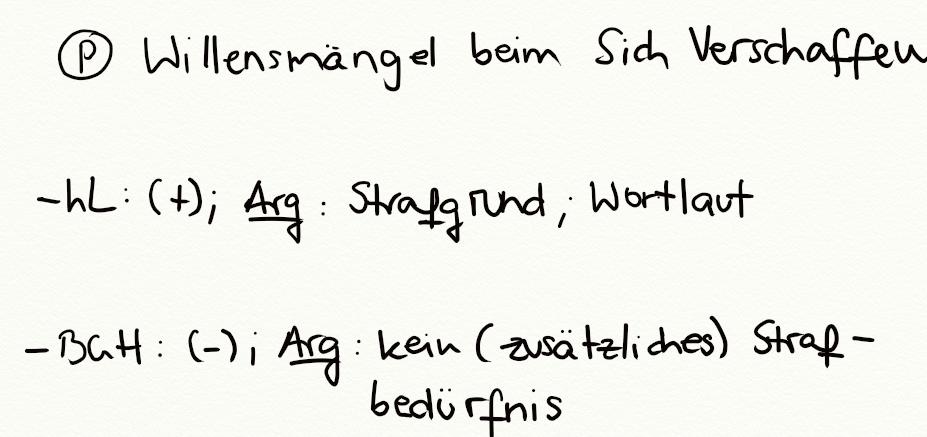 Ⓟ Willensmängel beim Sich Verschaffen
- hL: (+); Arg: Strafgrund, Wortlaut
- BGH: (-); Arg: kein (zusätzliches) Straf-
bedürfnis